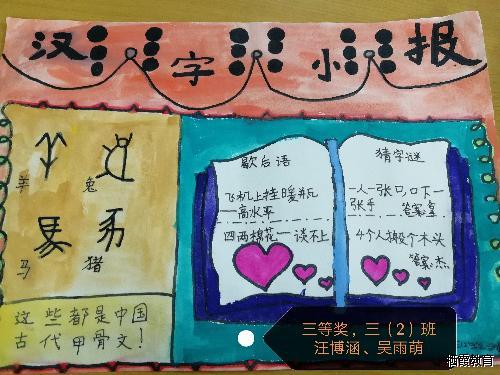 汉字小报
羊 兔
马 猪
这些都是中国
古代甲骨文！
歇后语
飞机上挂暖瓶
——高水平
四两棉花——谈不上
猜字谜
一人一张口,口下一
张手 答案:拿
4个人搬个木头
答案:杰
三等奖，三（2）班
汪博涵、吴雨萌
栖霞教育